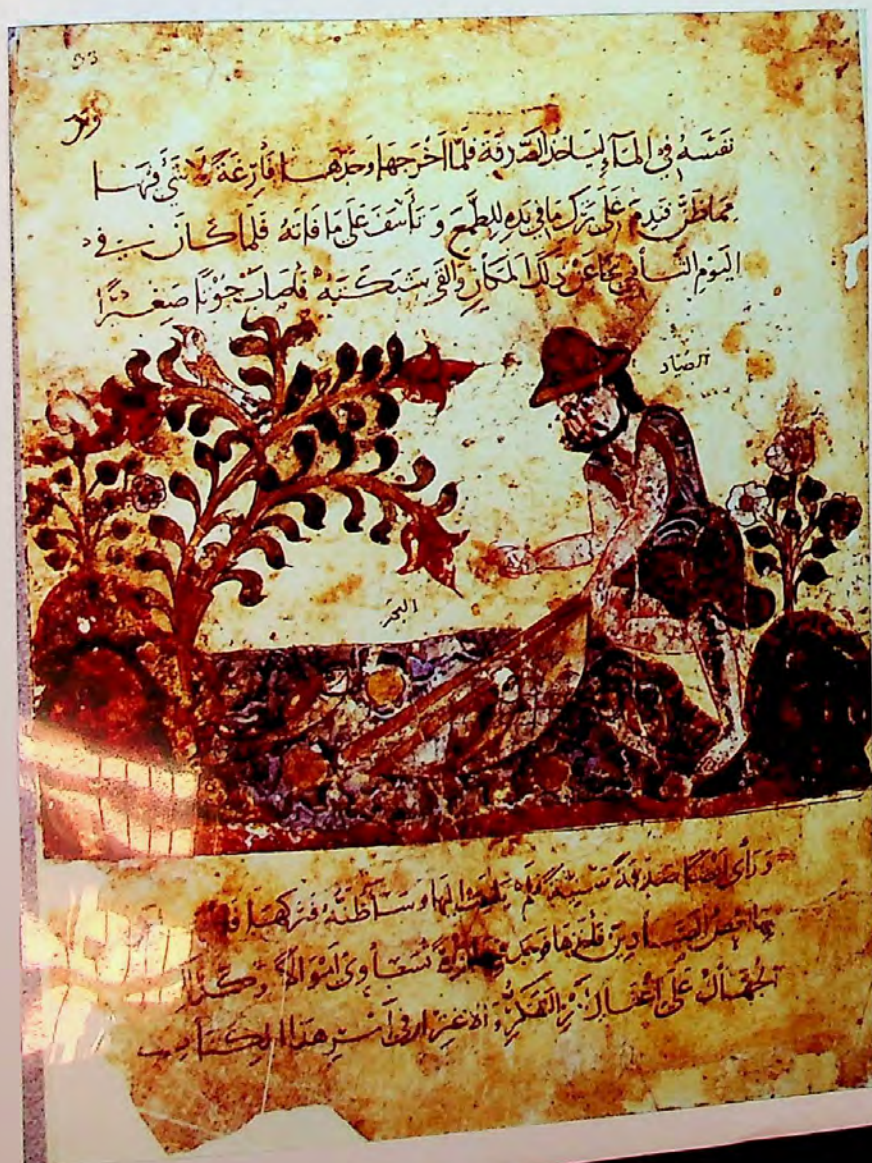 33
نفسه في الماء ليأخذ الصدفة فلما أخرجها وجدها فارغة لا شيء فيها
مما ظن فندم على ترك ما في يده للطمع وتأسف على ما فاته فلما كان في
اليوم الثاني تنحا عن ذلك المكان وألقى شبكته فصاد حوتا صغيرا
الصياد
البحر
ورأى أيضا صدفة سنية فلم يلتفت إليها وسآ ظنه فتركها
بعض الصيادين فأخذها فوجد درة تساوي أموالا وكذلك
الجهال على إغفال التفكر والاغترار في أمر هذا الكتاب